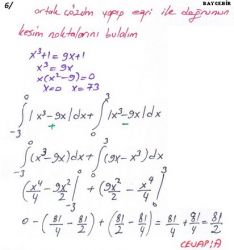 BAYCEBIR
6/ ortak çözüm yapıp eğri ile doğrunun
kesim noktalarını bulalım
x³+1=9x+1
x³=9x
x(x²-9)=0
x=0 x=∓3
∫₋₃⁰ |x³-9x|dx + ∫₀³ |x³-9x|dx
+ -
∫₋₃⁰ (x³-9x)dx + ∫₀³ (9x-x³)dx
(x⁴/4 - 9x²/2 |₋₃⁰ + (9x²/2 - x⁴/4 |₀³
0-(81/4 - 81/2) + (81/2 - 81/4) = 81/4 + 81/4 = 81/2
CEVAP:A